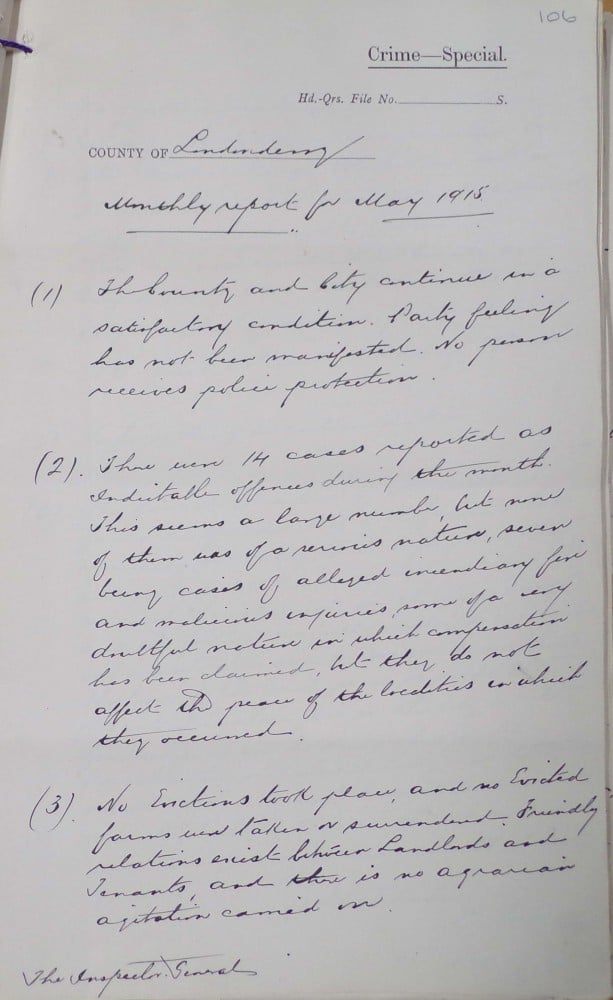 106
Crime—Special.
Hd.-Qrs. File No. S.
COUNTY OF Londonderry
Monthly report for May 1915
(1) The County and City continue in a
satisfactory condition. Party feeling
has not been manifested. No person
receives police protection.
(2). There were 14 cases reported as
Indictable offences during the month.
This seems a large number, but none
of them was of a serious nature, seven
being cases of alleged incendiary fire
and malicious injuries some of a very
doubtful nature in which compensation
has been claimed, but they do not
affect the peace of the localities in which
they occurred.
(3). No Evictions took place, and no Evicted
farms were taken or surrendered. Friendly
relations exist between Landlords and
Tenants, and there is no agrarian
agitation carried on.
The Inspector General